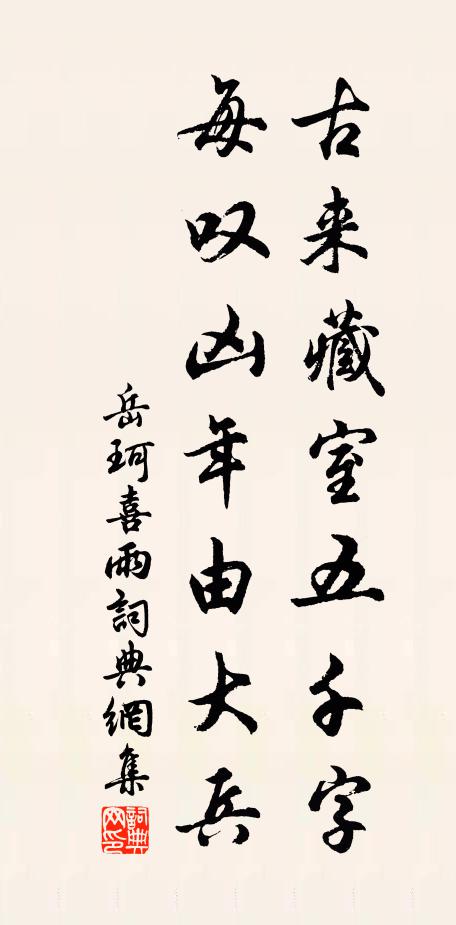 古来藏室五千字
每叹凶年由大兵
岳珂喜雨詞典網集
詞典網印